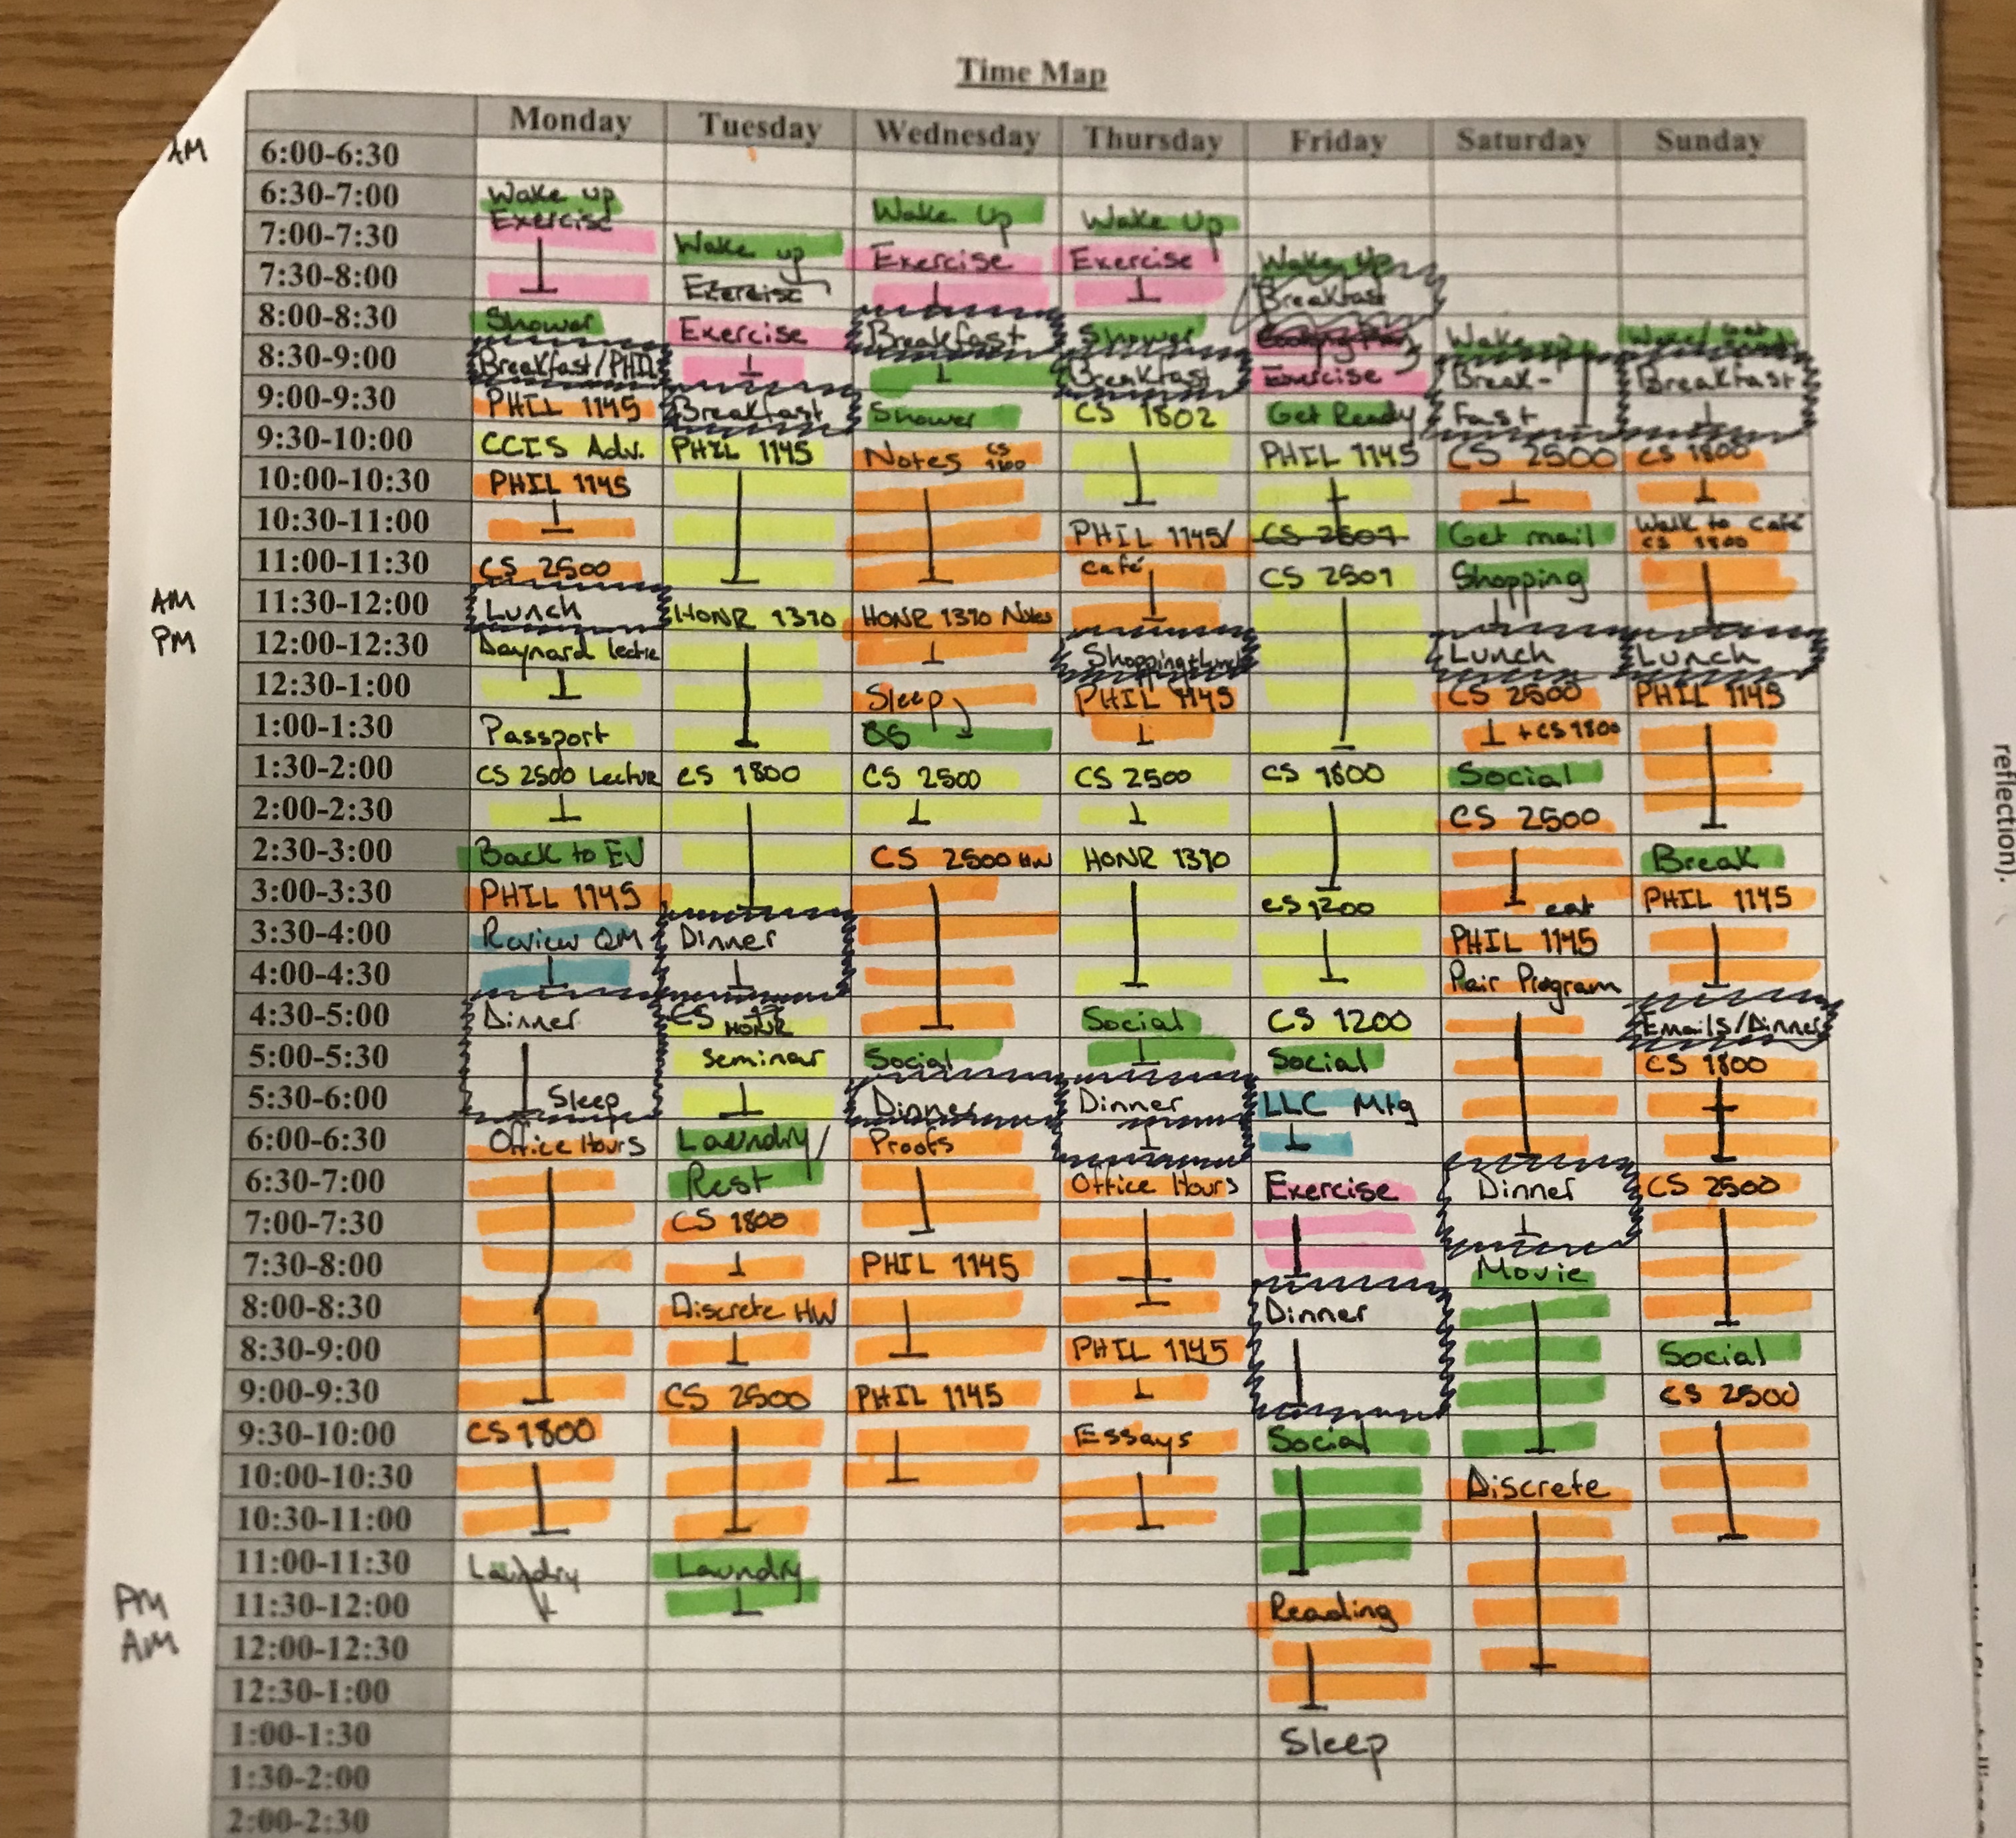 Time Map
Monday Tuesday Wednesday Thursday Friday Saturday Sunday
AM 6:00-6:30
6:30-7:00 Wake up Wake Up Wake Up
7:00-7:30 Exercise Wake up Exercise Exercise Wake Up
7:30-8:00 Exercise Breakfast
8:00-8:30 Shower Exercise Breakfast Shower Wake up
8:30-9:00 Breakfast/PHIL Breakfast Exercise Break- Breakfast
9:00-9:30 PHIL 1145 Breakfast Shower CS 1802 Get Ready Fast
9:30-10:00 CCIS Adv. PHIL 1145 Notes CS 1800 PHIL 1145 CS 2500 CS 1800
10:00-10:30 PHIL 1145
10:30-11:00 PHIL 1145/ CS 2501 Get mail Walk to Café CS 1800
11:00-11:30 CS 2500 Café CS 2501 Shopping
AM 11:30-12:00 Lunch HONR 1310 HONR 1310 Notes
PM 12:00-12:30 Daynard lectre Shopping+Lunch Lunch Lunch
12:30-1:00 Sleep PHIL 1145 CS 2500 PHIL 1145
1:00-1:30 Passport +CS 1800
1:30-2:00 CS 2500 Lecture CS 1800 CS 2500 CS 2500 CS 1800 Social
2:00-2:30 CS 2500
2:30-3:00 Back to EV CS 2500 HW HONR 1310 Break
3:00-3:30 PHIL 1145 CS 1200 eat PHIL 1145
3:30-4:00 Review QM Dinner PHIL 1145
4:00-4:30 Pair Program
4:30-5:00 Dinner CS HONR Social CS 1200 Emails/Dinner
5:00-5:30 seminar Social Social CS 1800
5:30-6:00 Sleep Dinner Dinner LLC Mtg
6:00-6:30 Office Hours Laundry/ Proofs
6:30-7:00 Rest Office Hours Exercise Dinner CS 2500
7:00-7:30 CS 1800
7:30-8:00 PHIL 1145 Movie
8:00-8:30 Discrete HW Dinner
8:30-9:00 PHIL 1145 Social
9:00-9:30 CS 2500 PHIL 1145 CS 2500
9:30-10:00 CS 1800 Essays Social
10:00-10:30 Discrete
10:30-11:00
11:00-11:30 Laundry Laundry
PM 11:30-12:00 Reading
AM 12:00-12:30
12:30-1:00
1:00-1:30 Sleep
1:30-2:00
2:00-2:30
reflection).